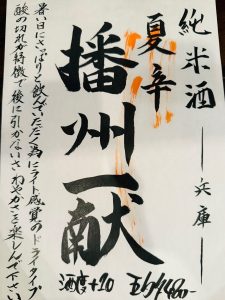 純米酒
夏辛
播州一献
兵庫
暑い日にさっぱりと飲んでいただく為にライト感覚のドライタイプ
酸の切れが特徴で後に引かないさわやかさを楽しんで下さい
酒度+10